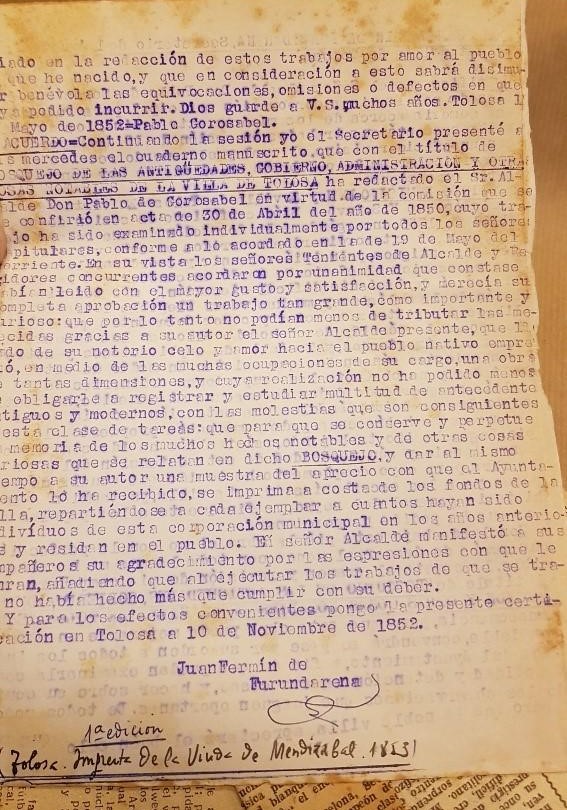 iado en la redacción de estos trabajos por amor al pueblo
que he nacido, y que en consideración a esto sabrá disimu-
r benévola las equivocaciones, omisiones o defectos en que
ya podido incurrir. Dios guarde a V.S. muchos años. Tolosa 1
Mayo de 1852=Pablo Gorosabel.
ACUERDO=Continuando la sesión yo el Secretario presenté a
s mercedes el cuaderno manuscrito, que con el título de
OSQUEJO DE LAS ANTIGÜEDADES, GOBIERNO, ADMINISTRACIÓN Y OTRA
OSAS NOTABLES DE LA VILLA DE TOLOSA ha redactado el Sr. Al-
lde Don Pablo de Gorosabel en virtud de la comisión que se
e confirió en acta de 30 de Abril del año de 1850, cuyo tra-
jo ha sido examinado individualmente por todos los señores
pitulares, conforme a lo acordado en la de 19 de Mayo del
rriente. En su vista los señores Tenientes de Alcalde y Re-
gidores concurrentes acordaron por unenimidad que constase
abían leído con el mayor gusto y satisfacción, y merecía su
ompleta aprobación un trabajo tan grande, como importante y
urioso: que por lo tanto no podían menos de tributar las me-
ecidas gracias a su autor el señor Alcalde presente, que ll
do de su notorio celo y amor hacia el pueblo nativo empre
ó, en medio de las muchas ocupaciones de su cargo, una obra
e tantas dimensiones, y cuya realización no ha podido menos
e obligarle a registrar y estudiar multitud de antecedente
tiguos y modernos, con las molestias que son consiguientes
esta clase de tareas: que para que se conserve y perpetue
a memoria de los muchos hechos notables y de otras cosas
riosas que se relatan en dicho BOSQUEJO, y dar al mismo
empo a su autor una muestra del aprecio con que al Ayunta-
ento lo ha recibido, se imprima a costa de los fondos de la
lla, repartiéndose a cada ejemplar a cuantos hayan sido
divíduos de esta corporación municipal en los años anterio-
s y residan en el pueblo. El señor Alcalde manifestó a sus
mpañeros su agradecimiento por las espresiones con que le
nran, añadiendo que al ejecutar los trabajos de que se tra-
no había hecho más que cumplir con su deber.
Y para los efectos convenientes pongo la presente certi-
cación en Tolosa a 10 de Noviembre de 1852.
Juan Fermín de
Furundarena
1ª edicion
(Tolosa. Imprenta de la Viuda de Mendizabal. 1853)